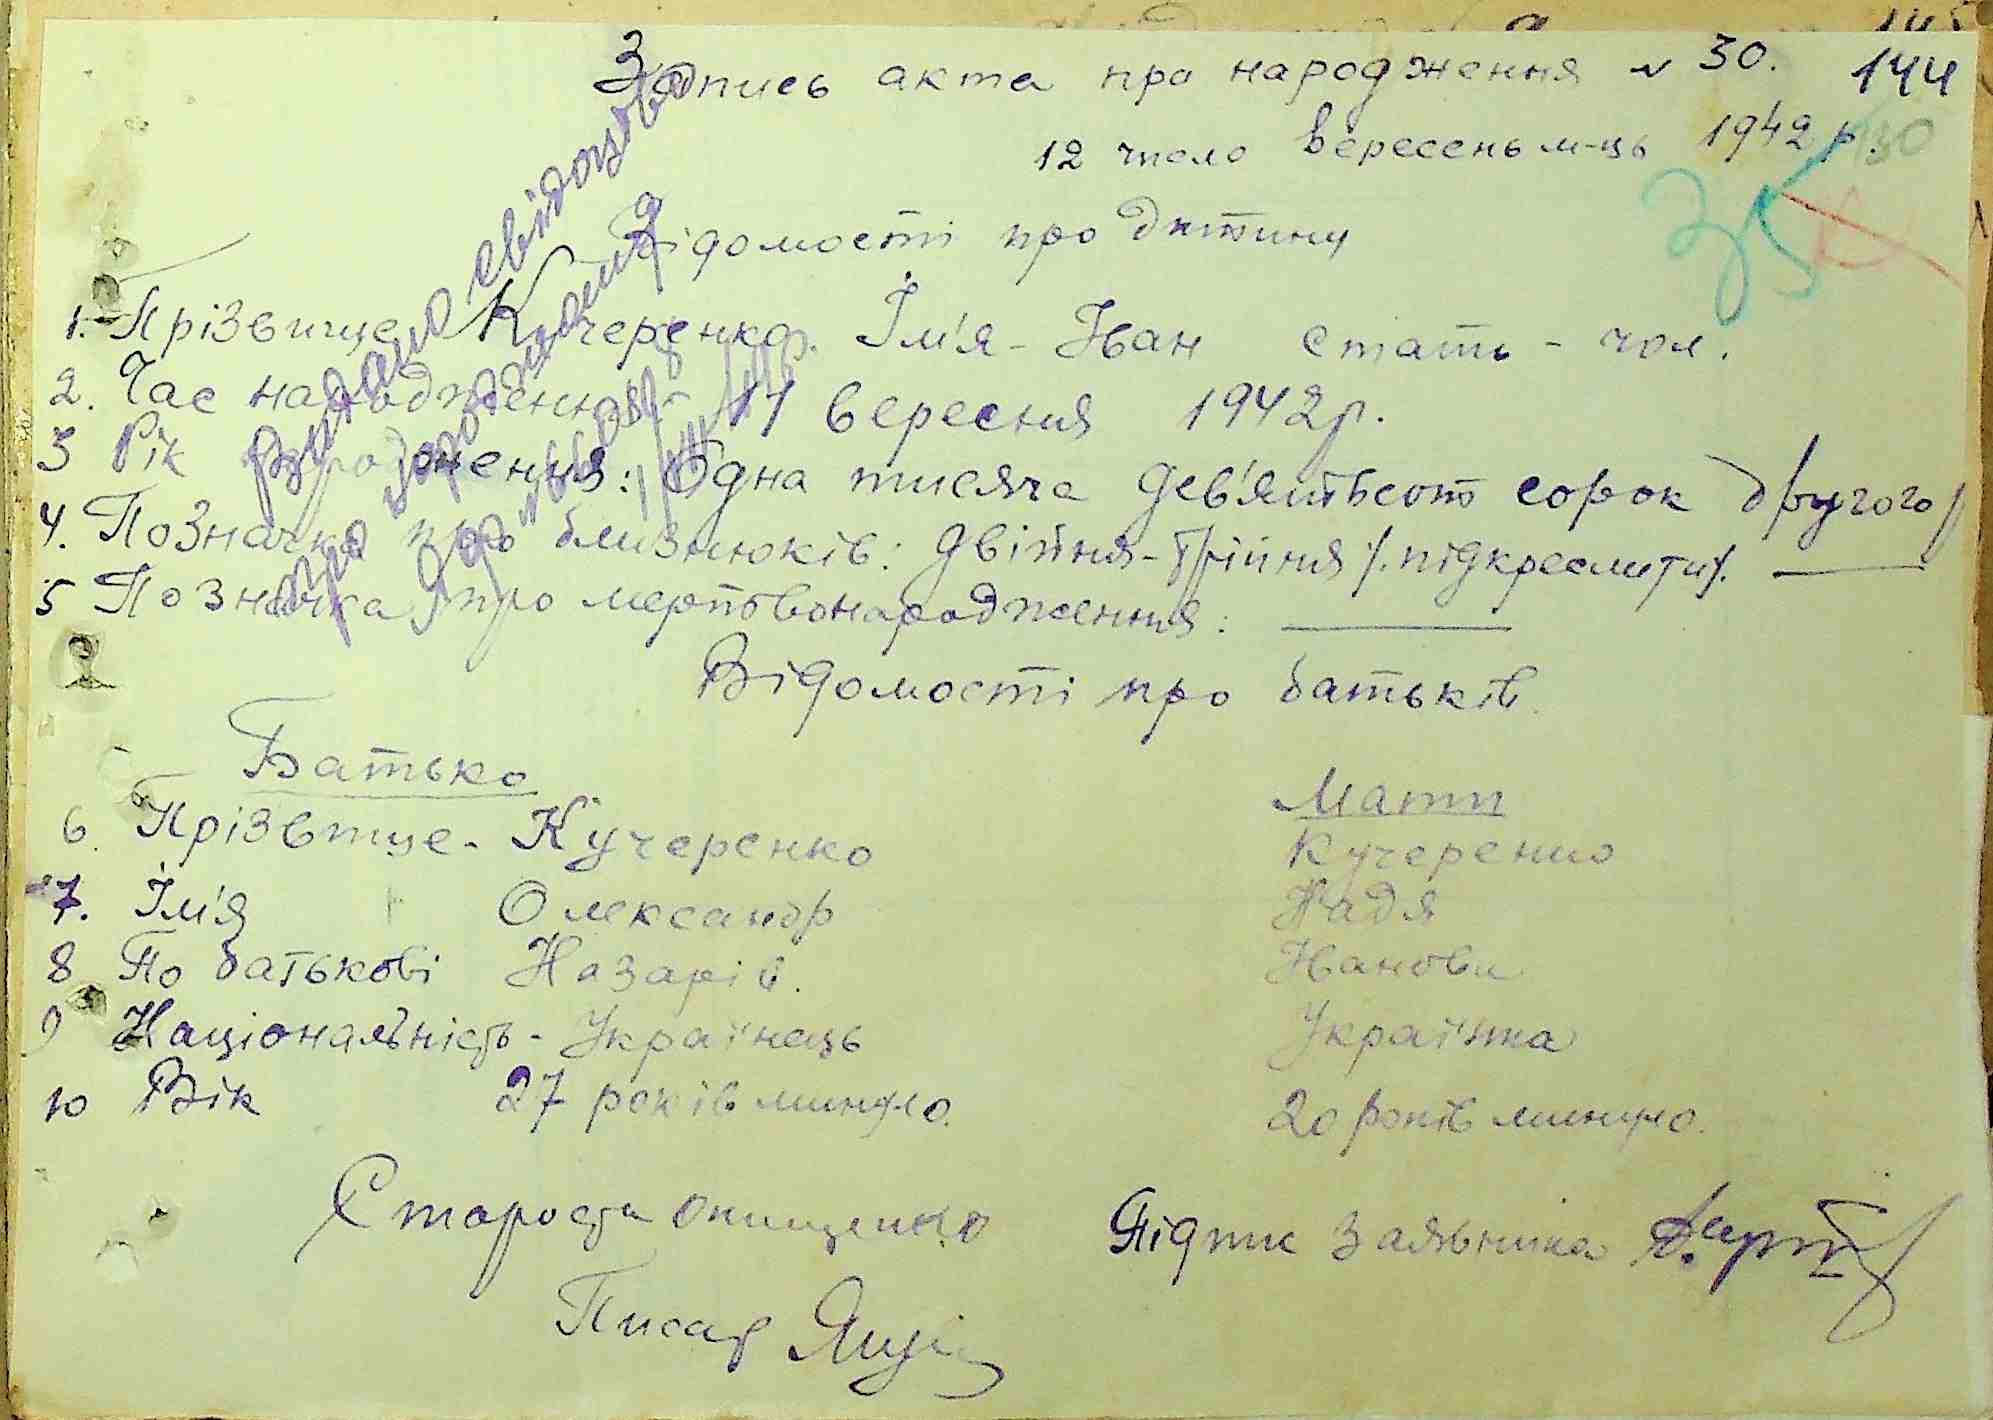 Запись акта про народження № 30. 144
12 число вересень м-ць 1942 р. 130
35
Відомості про дитину
1. Прізвище Кучеренко. Ім'я - Іван стать - чол.
2. Час народження - 11 вересня 1942 р.
3 Рік народження: Одна тисяча дев'ятьсот сорок другого
4. Позначка про близнюків: двійня - трійня /. підкреслити/.
5 Позначка про мертвонародження:
Видано свідоцтво
про народження
Відомості про батьків
Батько Мати
6. Прізвище - Кучеренко Кучеренко
7. Ім'я Олександр Надя
8 По батькові Назарів. Іванови
9 Національність - Українець Українка
10 Вік 27 років минуло. 20 років минуло.
Староста Онищенко Підпис заявника
Писар